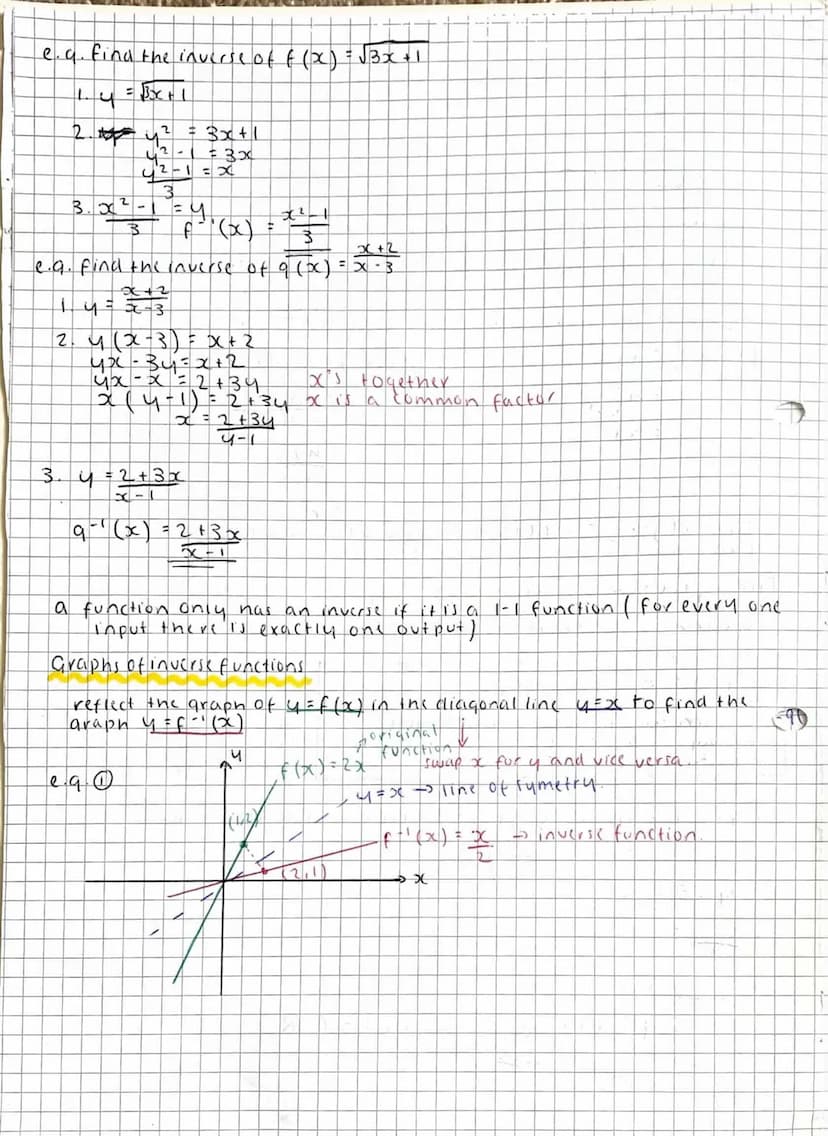 e.g. find the inverse of f(x) = √3x+1
1. y = √3x+1
2. y² = 3x+1
y²-1 = 3x
y²-1/3 = x
3. x²-1/3 = y
f⁻¹(x) = x²-1/3
e.g. find the inverse of g(x) = x+2/x-3
1. y = x+2/x-3
2. y(x-3) = x+2
yx - 3y = x+2
yx - x = 2+3y x's together
x(y-1) = 2+3y x is a common factor
x = 2+3y/y-1
3. y = 2+3x/x-1
g⁻¹(x) = 2+3x/x-1
a function only has an inverse if it is a 1-1 function (for every one
input there is exactly one output)
Graphs of inverse functions
reflect the graph of y=f(x) in the diagonal line y=x to find the
graph y=f⁻¹(x)
original
function
f(x)=2x
swap x for y and vice versa.
e.g. ①
y
y=x → line of symetry.
(1,2)
f⁻¹(x) = x/2 → inverse function.
(2,1)
x